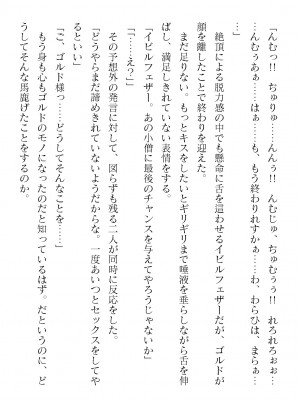 「んむっ!!　ちゅりゅ……んんぅ!　んむじゅ、ちゅむぅぅ!!　れろれろぉぉ…
…んむぅあぁ……はぁ……も、もう終わりれすかぁ……わ、わらひは、まらぁ…
…」
絶頂による脱力感の中でも懸命に舌を這わせるイビルフェザーだが、ゴルドが
顔を離したことで終わりを迎えた。
まだ足りない。もっとキスをしたいとギリギリまで唾液を垂らしながら舌を伸
ばし、満足しきれていない表情をする。
「イビルフェザー。あの小僧に最後のチャンスを与えてやろうじゃないか」
「……え？」
その予想外の発言に対して、図らずも残る二人が同時に反応をした。
「どうやらまだ諦めきれていないようだからな。一度あいつとセックスをしてや
れ」
「ご、ゴルド様っ……どうしてそんなことを……」
もう身も心もゴルドのモノになったのだと知っているはず。だというのに、ど
うしてそんな馬鹿げたことをするのか。